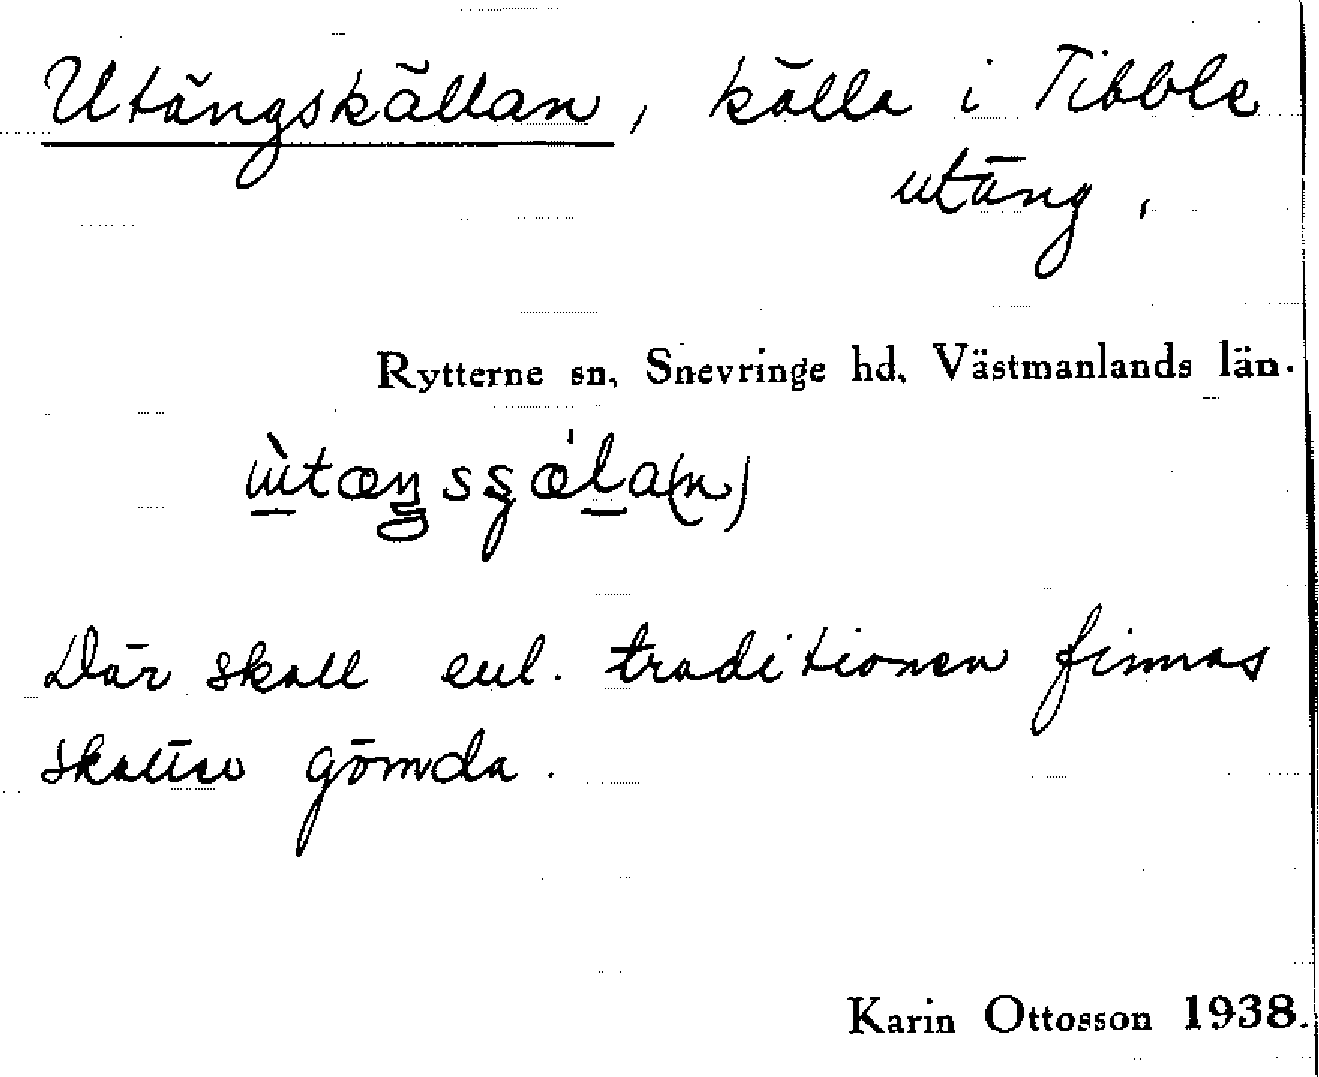 Utängskällan, källa i Tibble
utäng,
Rytterne sn, Snevringe hd, Västmanlands län.
Där skall enl. traditionen finnas
skatter gömda.
Karin Ottosson 1938.